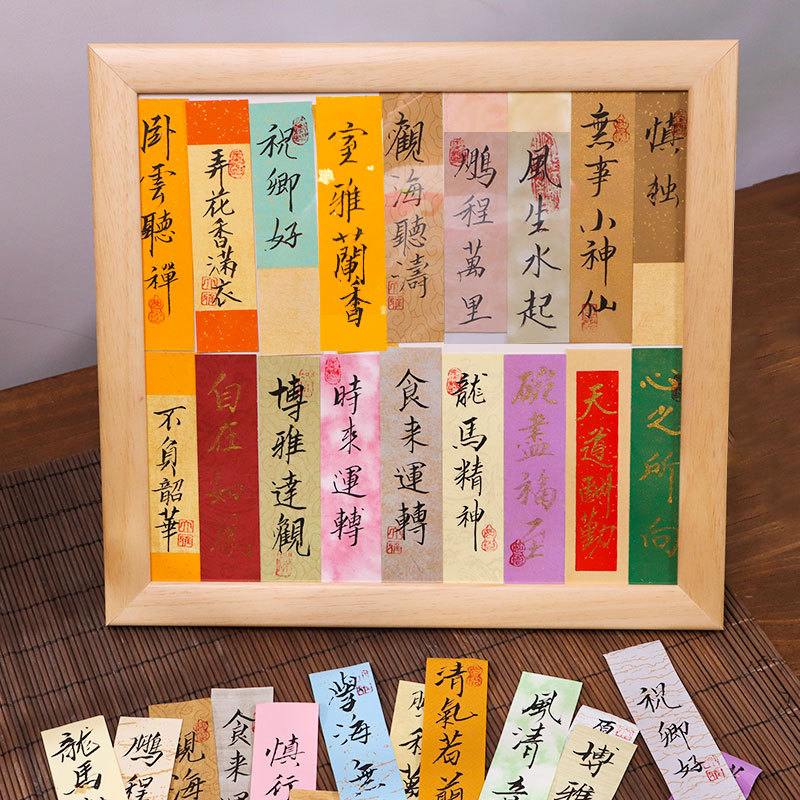 卧雲聽禪
弄花香滿衣
祝卿好
室雅蘭香
觀海聽濤
鵬程萬里
風生水起
無事小神仙
慎独
不負韶華
自在如風
博雅達觀
時來運轉
食来運轉
龍馬精神
碗盡福至
天道酬勤
心之所向
龍馬
鵬程
觀海
食来
慎行
學海無
程萬
清氣若蘭
風清
博雅
祝卿好